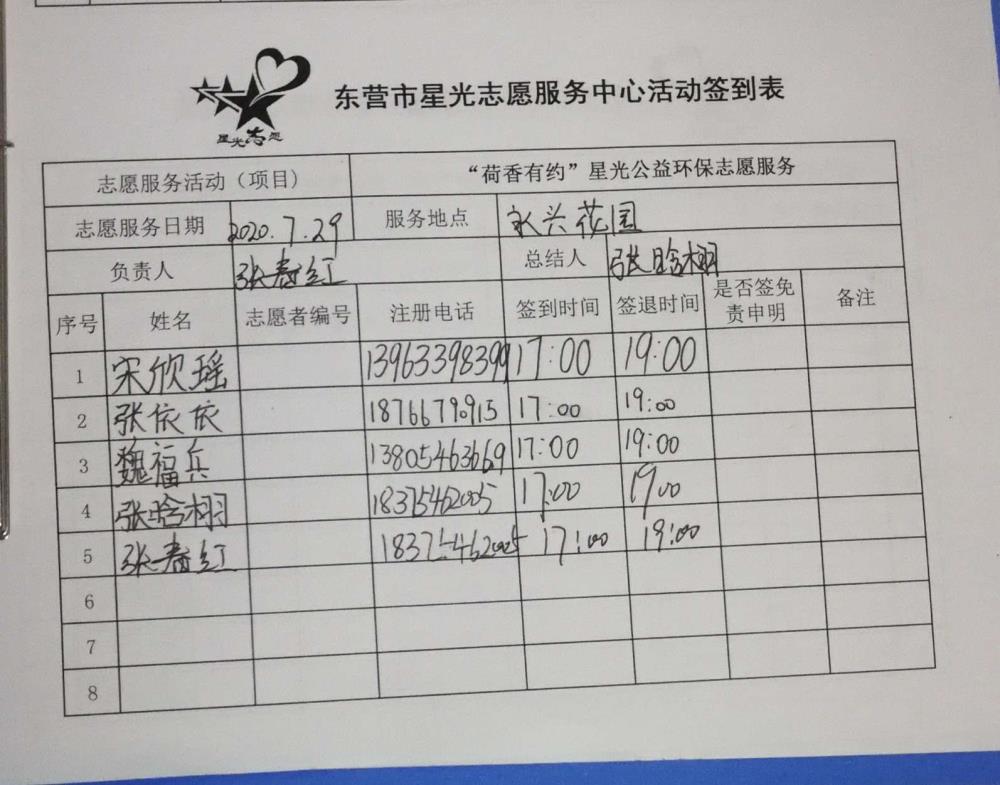 星光志愿
东营市星光志愿服务中心活动签到表
志愿服务活动（项目） “荷香有约”星光公益环保志愿服务
志愿服务日期 2020.7.29 服务地点 永兴花园
负责人 张春红 总结人 张晗栩
序号 姓名 志愿者编号 注册电话 签到时间 签退时间 是否签免责申明 备注
1 宋欣瑶 13963398399 17:00 19:00
2 张依依 18766790915 17:00 19:00
3 魏福兵 13805463669 17:00 19:00
4 张晗栩 18375462005 17:00 19 00
5 张春红 18375462005 17:00 19:00
6
7
8